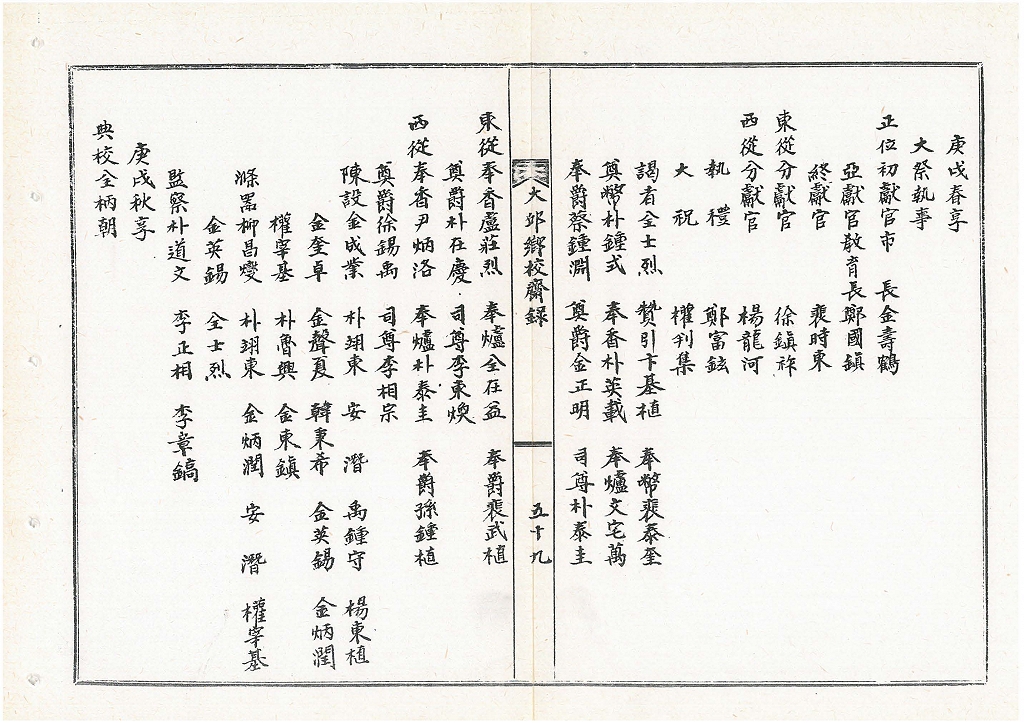 庚戌春享
大祭執事
正位初獻官市 長金壽鶴
亞獻官敎育長鄭國鎭
終獻官 裵時東
東從分獻官 徐鎭祚
西從分獻官 楊龍河
執 禮 鄭富鉉
大 祝 權刋集
謁者全士烈 贊引卞基植 奉幣裵泰奎
奠幣朴鍾式 奉香朴英載 奉爐文宅萬
奉爵蔡鍾淵 奠爵金正明 司尊朴泰圭
大邱鄕校齋録
五十九
東從奉香盧莊烈 奉爐全在益 奉爵裵武植
奠爵朴在慶 司尊李東煥
西從奉香尹炳洛 奉爐朴泰圭 奉爵孫鍾植
奠爵徐錫禹 司尊李相宗
陳設金成業 朴翊東 安 潛 禹鍾守 楊東植
金奎卓 金聲夏 韓秉希 金英錫 金炳潤
權寧基 朴魯興 金東鎭
滌器柳昌燮 朴翊東 金炳潤 安 潛 權寧基
金英錫 全士烈
監察朴道文 李正相 李章鎬
庚戌秋享
典校全柄朝